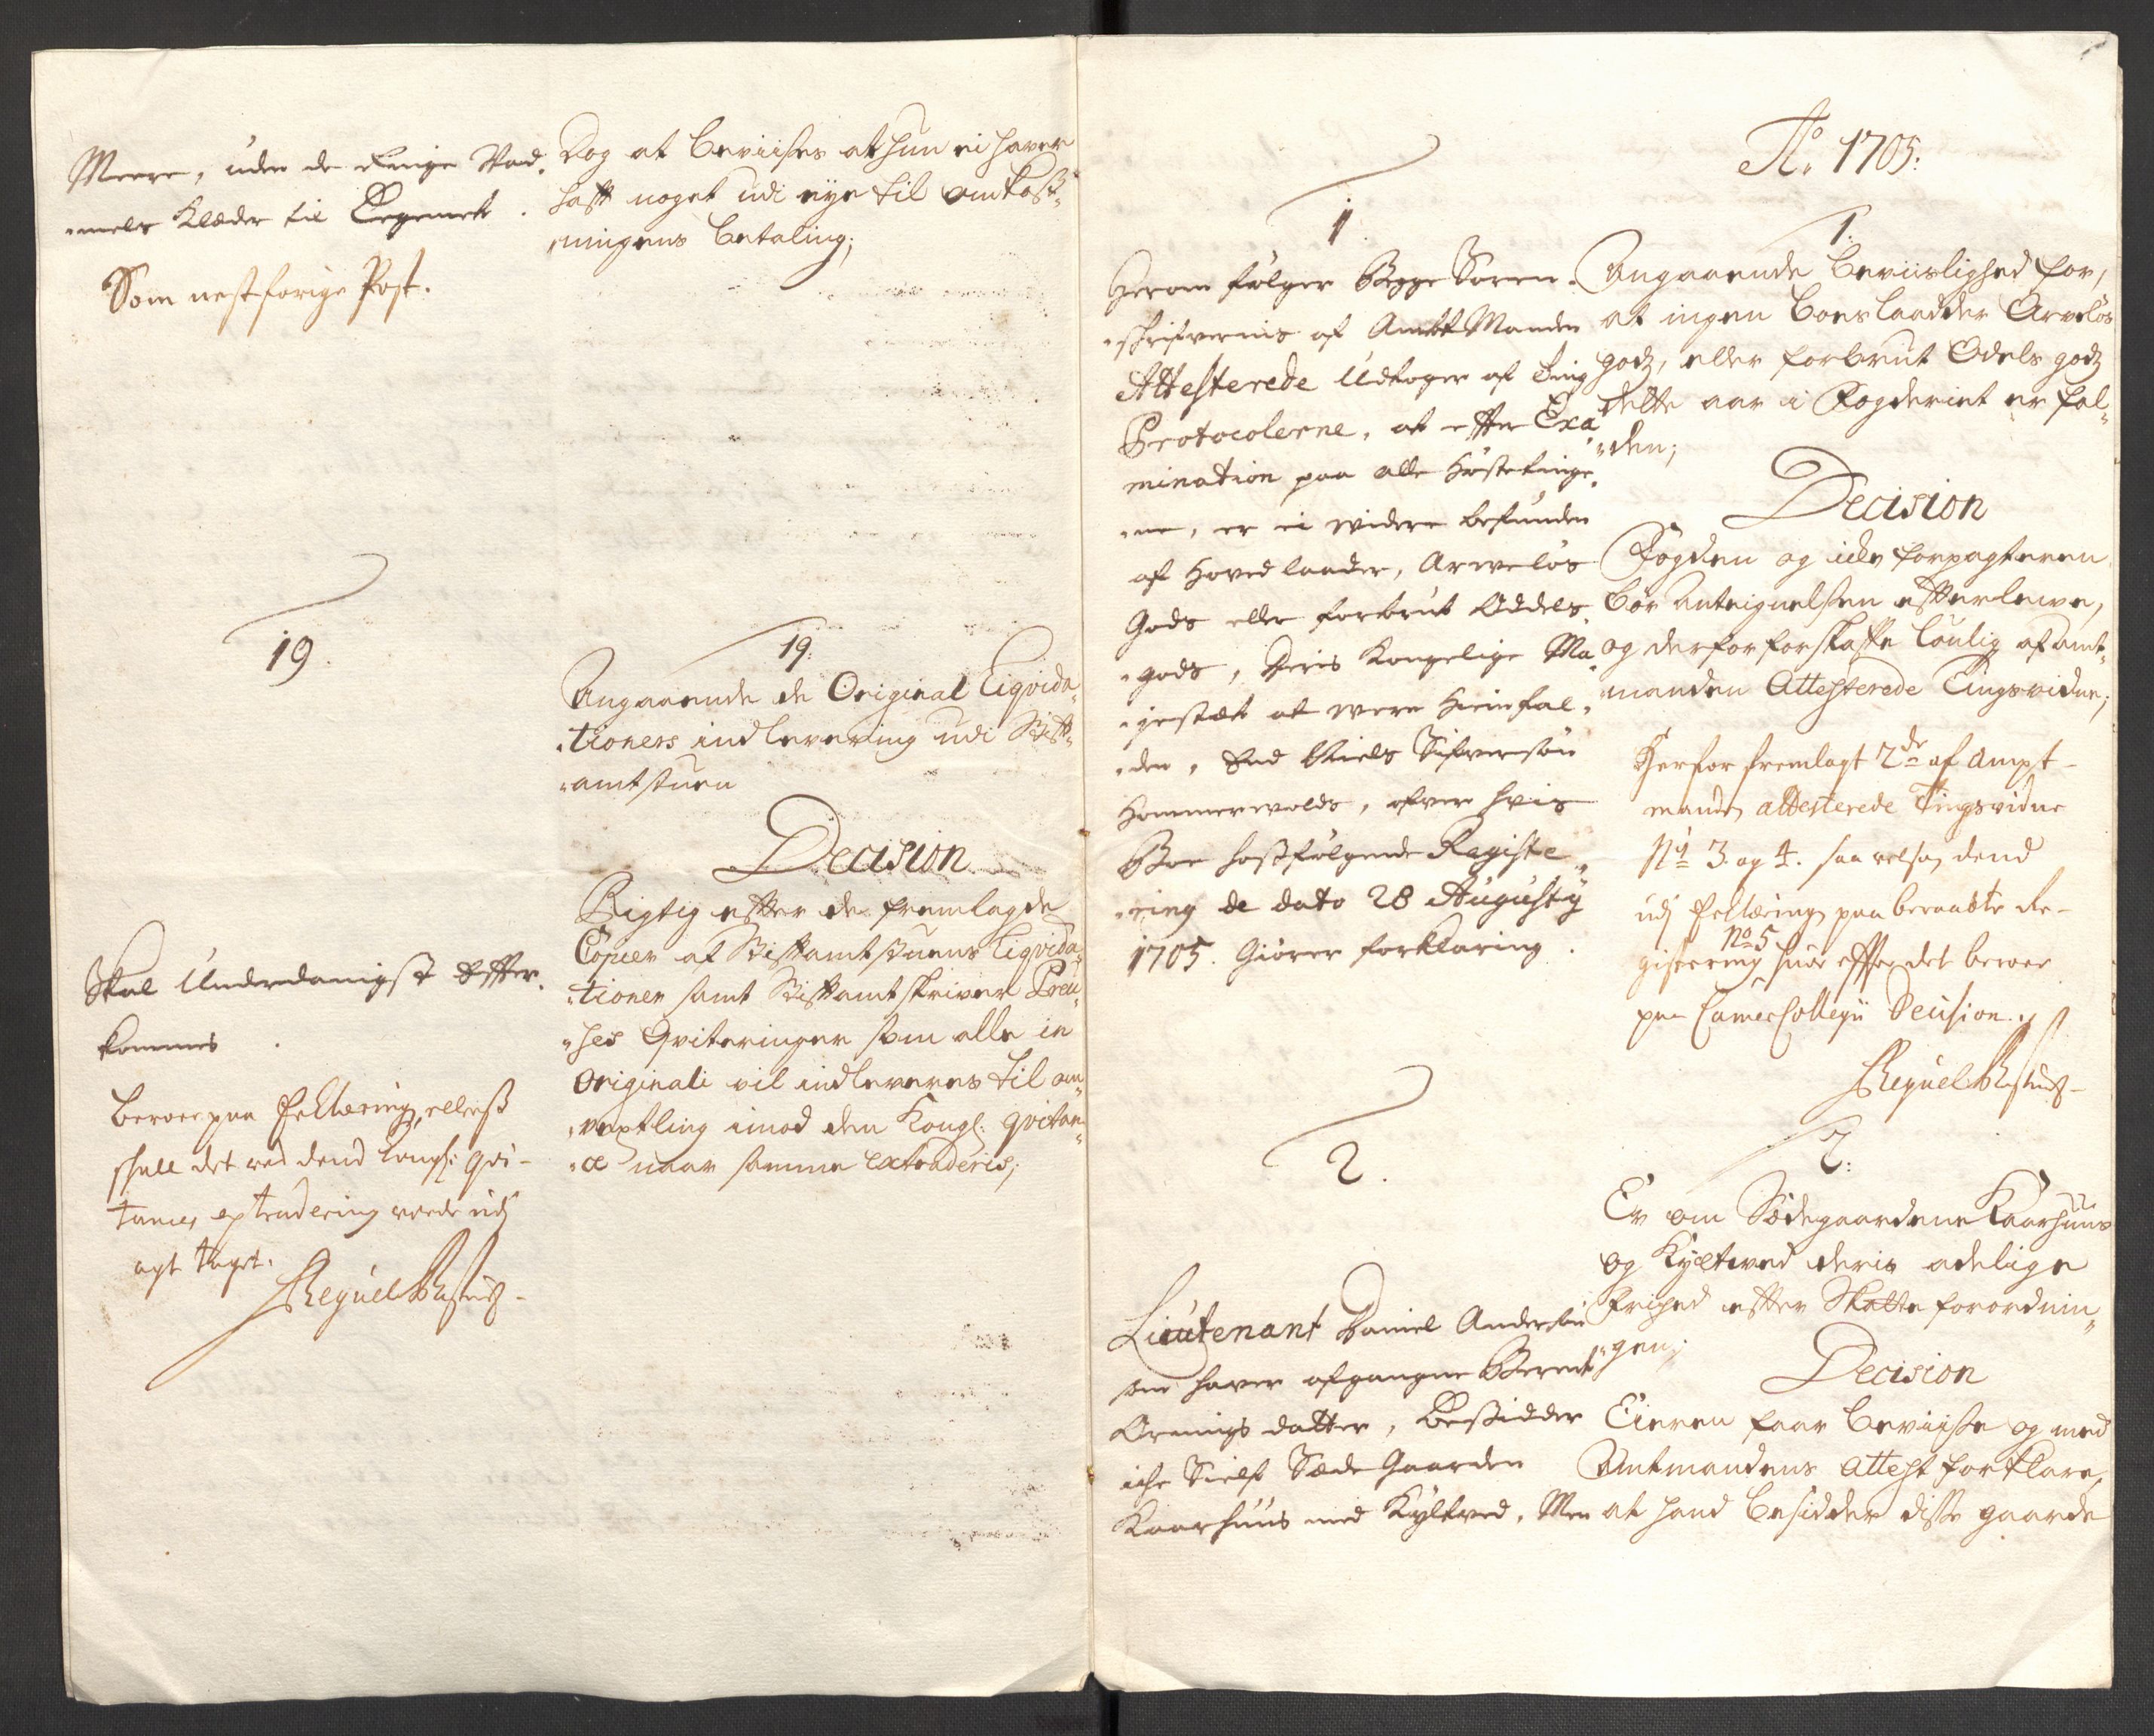 Meere, uden de ringe Vad„
„mels Klæder til Legemet.
Som nestforige Post.
19.
Skal Underdanigst Effter„
kommes.
beroer paa Erklering, ellerß
skall det ved dend Kongl: Qvi-
tances extradering vorde udj
agt taget.
Dog at beviises at hun ei haver
hafft noget udi eye til omkost„
„ningens betaling;
19:
Angaaende de Original Liqvida„
„tioners indlevering udi Stifft„
„amtstuen
Decision
Rigtig effter de fremlagde
Copier af Stifftamtstuens Liqvida„
„tioner samt Stifftamtskriver
Qviteringer som alle in
Originali vil indleveres til om„
„vexling imod den Kongl: Qvitan„
„ce naar samme extraderis;
1.
Herom følger Sorren„
„skrifvernis af AmbtManden
Attesterede Udtoger af Ting
Protocolerne, at effter Exa„
mination paa alle Høstetinge„
„ne, er ei widere befunden
af Hoved laader, Arveløs
Gods eller forbrut Oddels„
„gods, Deris Kongelige Ma„
„jestæt at were Hiemfal„
„den, End Niels Sifversøn
Hommervolds, ofver hvis
Boe hoßfølgende Registe„
„ring de dato 28 Augusty
1705. Giører forklaring.
2.
Lieutenant Daniel Andersøn
som haver afgangne Berent
Orningsdatter, Besidder
iche Sielf Sæde Gaarden
Kaarhuus med Kyltved, Men
Ao. 1705:
1.
Angaaende beviislighed for,
at ingen boeslaadder Arveløs
godz, eller forbrut Odels godz
dette aar i Fogderiet er fal„
„den;
Decision
Fogden og icke forpagteren
bør Antegnelsen effterleve,
og derfor forskaffe lovlig af amt„
manden Attesterede Tingsvidne;
Herfor fremlagt 2de af Ampt-
manden attesterede Tingsvidne
No 3 og 4. saa velsom dend
udj Erklering paaberaabte Re-
No 5
gistering, huor effter det beroer
paa CamerCollegii Decision.
2:
Er om Sædegaardene Kaarhuus
og Kyltved deris adelige
frihed effter Skatte forordnin„
„gen;
Decision
Eieren faar beviise og med
Amtmandens Attest forklare,
at hand besidder disse gaarde